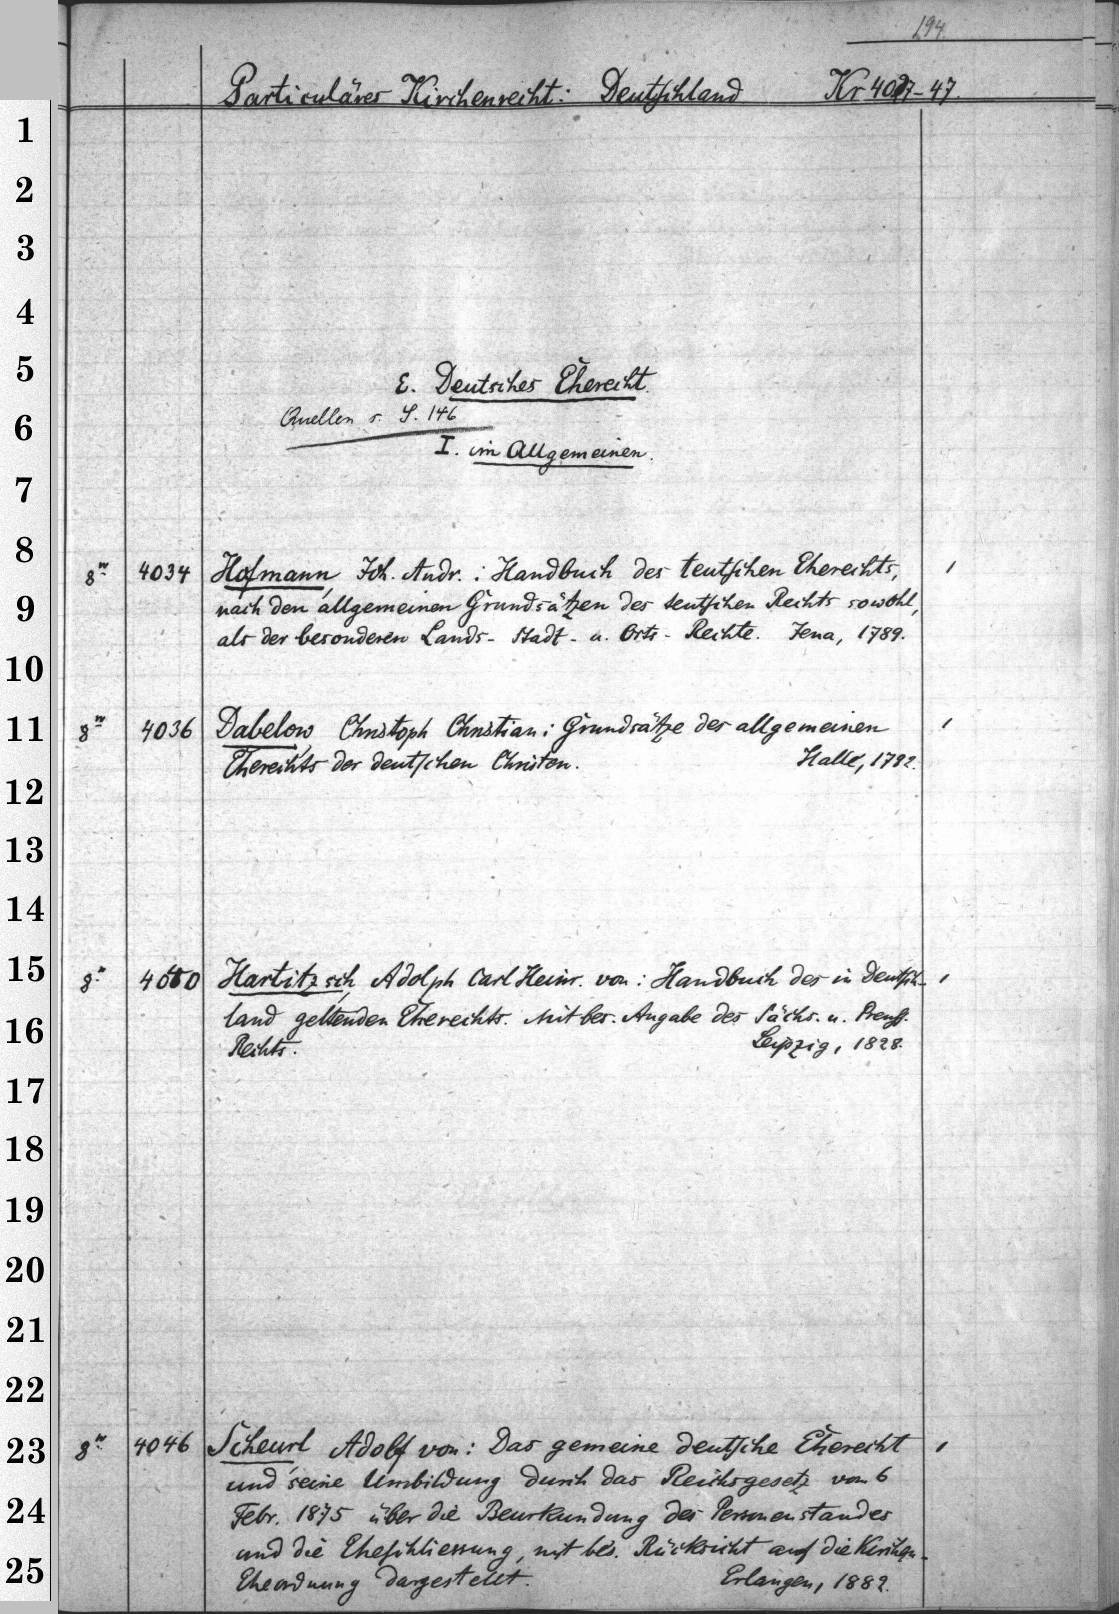 194.
Particuläres Kirchenrecht: Deutschland Kr 4027-47.
1
2
3
4
5
E. Deutsches Eherecht.
Quellen s. S. 146
6
I. im Allgemeinen.
7
8
8° 4034 Hofmann, Joh. Andr.: Handbuch des teutschen Eherechts, 1
9
nach den allgemeinen Grundsätzen des teutschen Rechts sowohl,
als der besonderen Lands- Stadt- u. Orts- Rechte. Jena, 1789.
10
11
8° 4036 Dabelow, Christoph Christian: Grundsätze des allgemeinen 1
Eherechts der deutschen Christen. Halle, 1792.
12
13
14
15
8° 40 0 Hartitzsch, Adolph Carl Heinr. von: Handbuch des in Deutsch- 1
land geltenden Eherechts. Mit bes. Angabe des Sächs. u. Preuss.
16
Rechts. Leipzig, 1828.
17
18
19
20
21
22
23
8° 4046 Scheurl, Adolf von: Das gemeine deutsche Eherecht 1
und seine Umbildung durch das Reichsgesetz vom 6
24
Febr. 1875 über die Beurkundung des Personenstandes
und die Eheschliessung, mit bes. Rücksicht auf die Kirchen-
25
Eheordnung dargestellt. Erlangen, 1882.